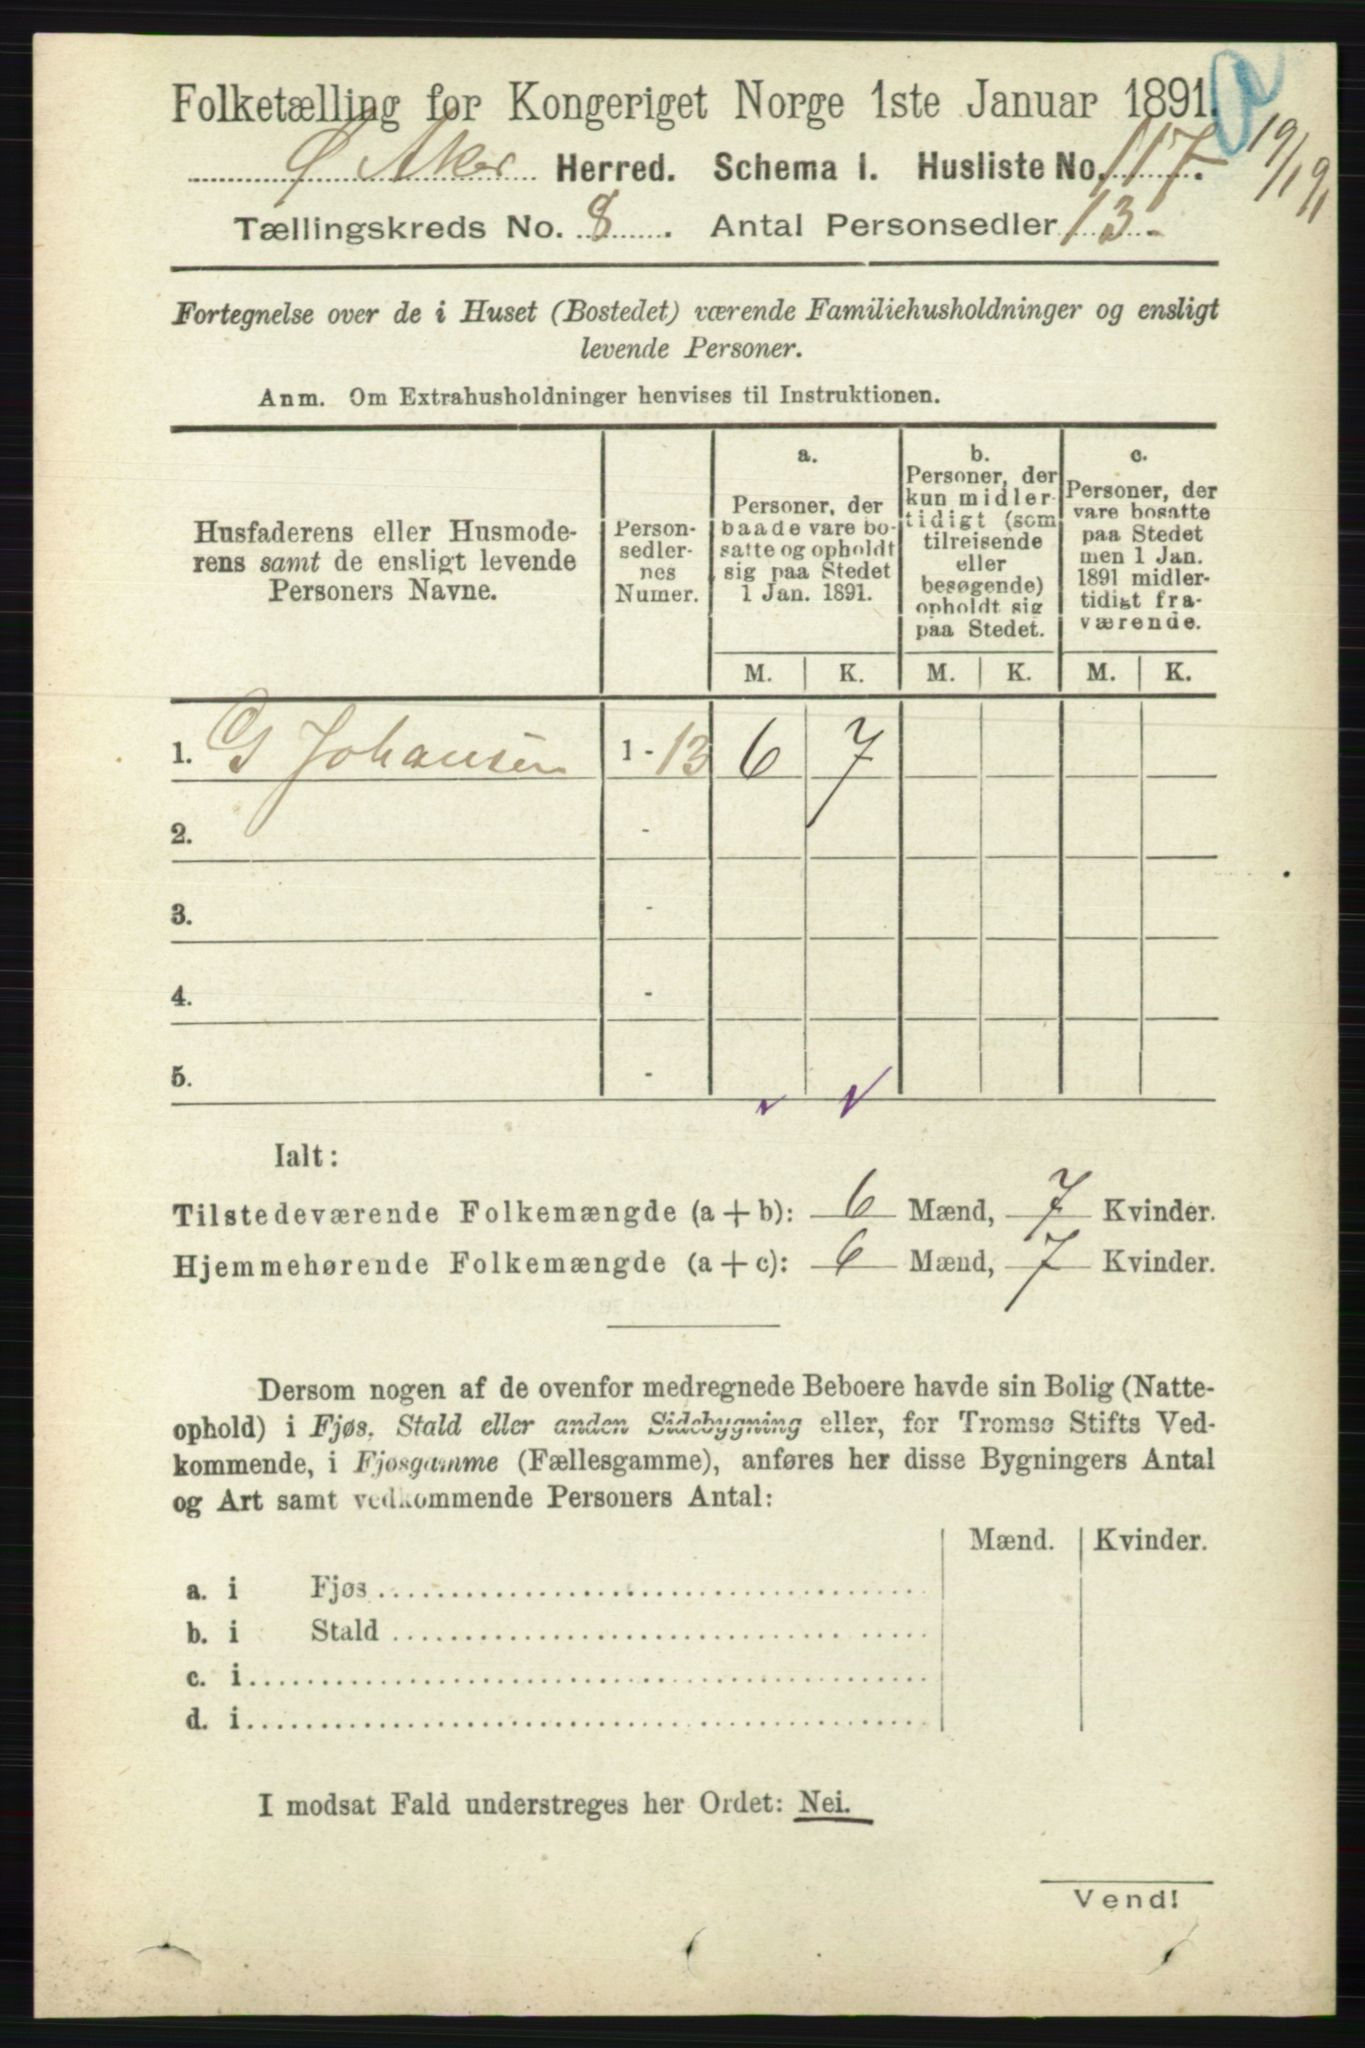 Folketælling for Kongeriget Norge 1ste Januar 1891.
Ø Aker Herred. Schema I. Husliste No. 117.
Tællingskreds No. 8. Antal Personsedler 13.
Fortegnelse over de i Huset (Bostedet) værende Familiehusholdninger og ensligt
levende Personer.
Anm. Om Extrahusholdninger henvises til Instruktionen.
Husfaderens eller Husmode-
rens samt de ensligt levende
Personers Navne.
Person-
sedler-
nes
Numer.
a.
Personer, der
baade vare bo-
satte og opholdt
sig paa Stedet
1 Jan. 1891.
b.
Personer, der
kun midler-
tidigt (som
tilreisende
eller
besøgende)
opholdt sig
paa Stedet.
c.
Personer, der
vare bosatte
paa Stedet
men 1 Jan.
1891 midler-
tidigt fra-
værende.
M. K. M. K. M. K.
1. G Johansen 1 - 13 6 7
2. -
3. -
4. -
5. -
Ialt:
Tilstedeværende Folkemængde (a + b): 6 Mænd, 7 Kvinder.
Hjemmehørende Folkemængde (a + c): 6 Mænd, 7 Kvinder.
Dersom nogen af de ovenfor medregnede Beboere havde sin Bolig (Natte-
ophold) i Fjøs, Stald eller anden Sidebygning eller, for Tromsø Stifts Ved-
kommende, i Fjøsgamme (Fællesgamme), anføres her disse Bygningers Antal
og Art samt vedkommende Personers Antal:
Mænd. Kvinder.
a. i Fjøs
b. i Stald
c. i
d. i
I modsat Fald understreges her Ordet: Nei.
Vend!